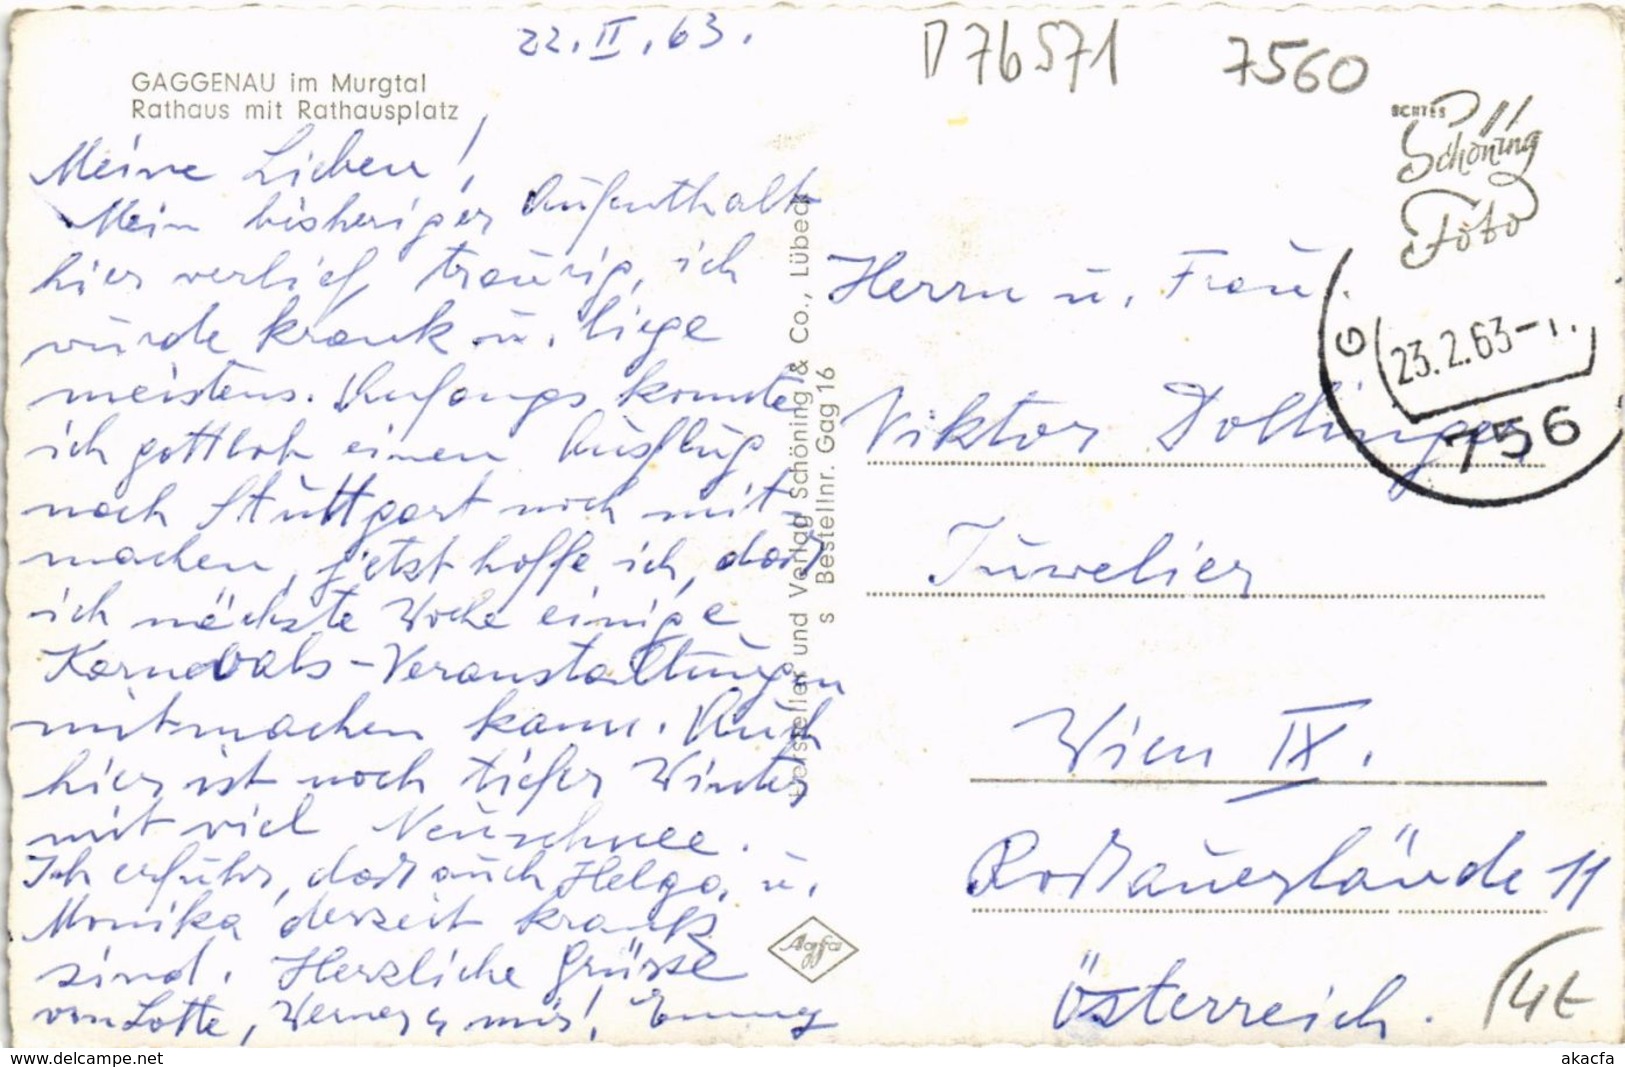 22.II.63.
D 76571
7560
GAGGENAU im Murgtal
Rathaus mit Rathausplatz
Meine Lieben!
Mein bisheriger Aufenthalt
hier verlief traurig, ich
wurde krank u. liege
meistens. Anfangs konnte
ich gottlob einen Ausflug
nach Stuttgart noch mit-
machen, jetzt hoffe ich, daß
ich nächste Woche einige
Karnevals-Veranstaltungen
mitmachen kann. Auch
hier ist noch tiefer Winter
mit viel Neuschnee.
Ich erfuhr, daß auch Helga u.
Monika derzeit krank
sind. Herzliche Grüsse
von Lotte, Werner u. mir! Emmy
Hersteller und Verlag Schöning & Co., Lübeck
s Bestellnr. Gag 16
Agfa
ECHTES
Schöning
Foto
G
23.2.63-
756
Herrn u. Frau
Viktor Dollinger
Juwelier
Wien IX.
Roßauerlände 11
Österreich.
4t
www.delcampe.net
akacfa